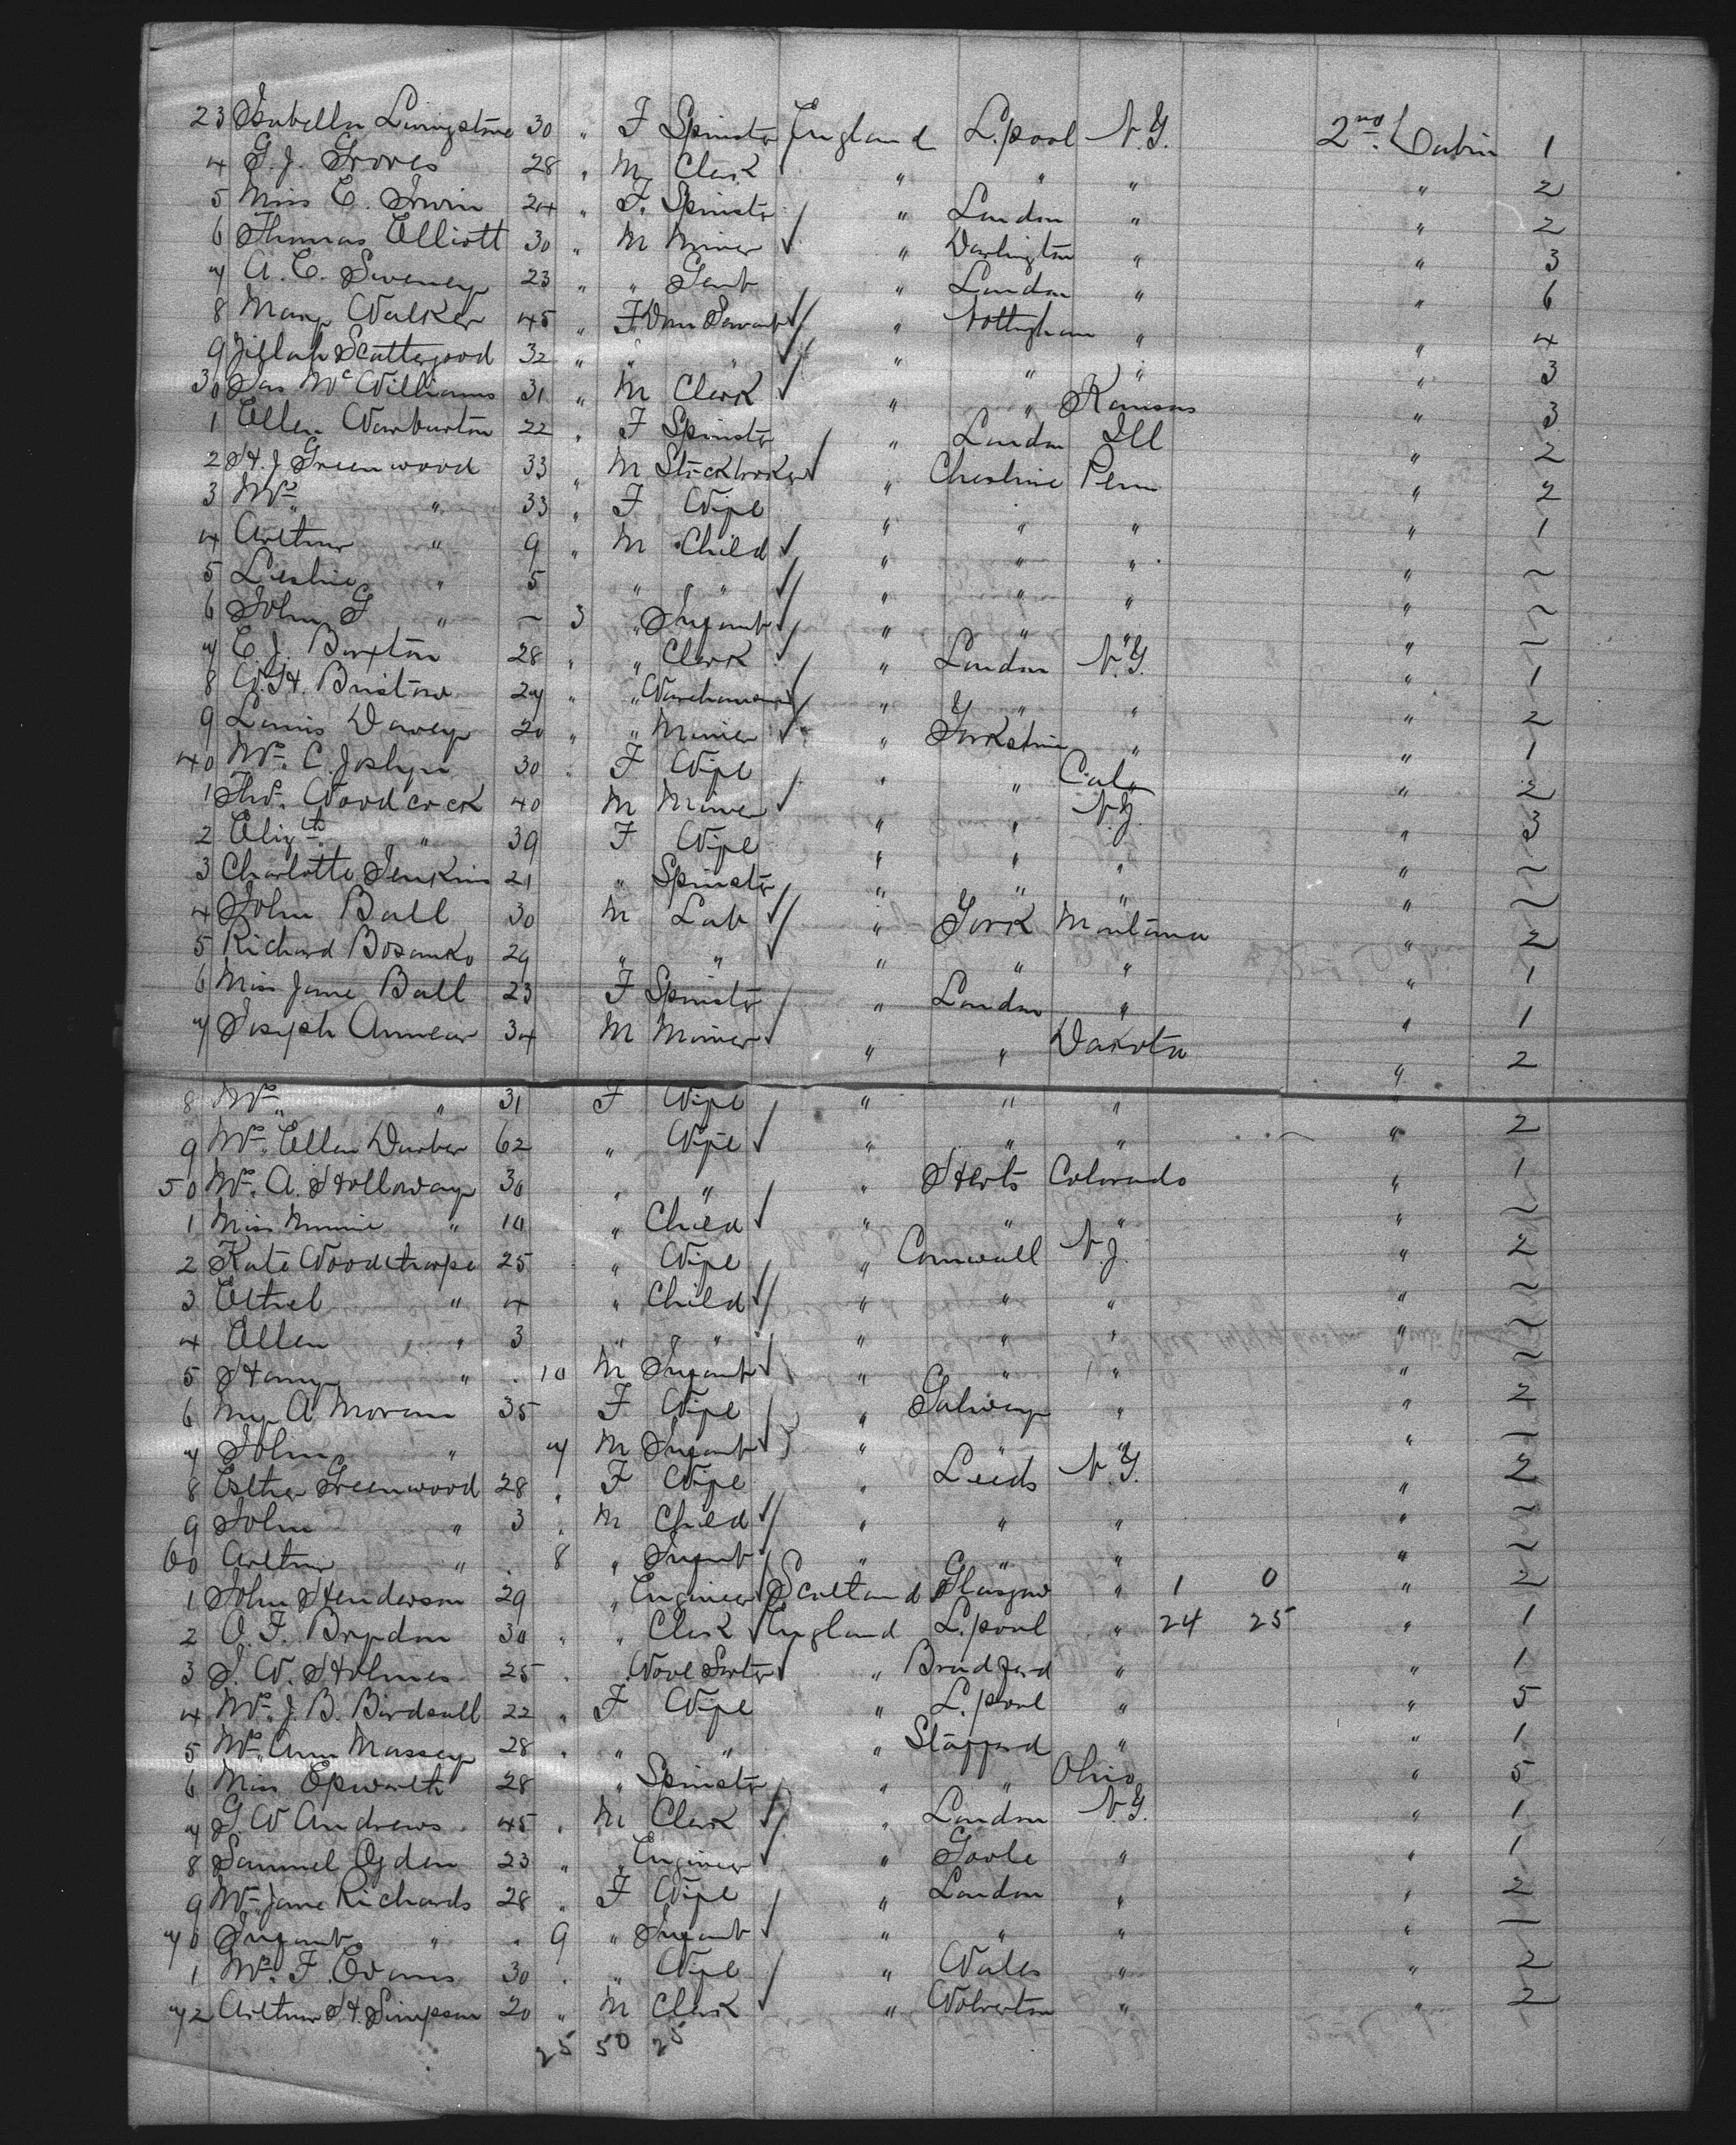 23 Isabella Livingstone 30 " F Spinster England L.pool N.Y. 2nd Cabin 1
4 G. J. Groves 28 " M Clerk " " " " 2
5 Miss E. Irwin 24 " F. Spinster " London " " 2
6 Thomas Elliott 30 " M Miner " Darlington " " 3
7 A. E. Sweney 23 " " Gent " London " " 6
8 Mary Walker 45 " F Dom Servant " Nottigham " " 4
9 Zillah Scattergood 32 " " " " " " " 3
30 Jas McWilliams 31 " M Clerk " " Kansas " 3
1 Ellen Warburton 22 " F Spinster " London Ill " 2
2 H. J. Greenwood 33 " M Stockbroker " Cheshire Penn " 2
3 Mrs " 33 " F Wife " " " " 1
4 Arthur " 9 " M Child " " " " ~
5 Leslie " 5 " " " " " " ~
6 John G " ~ 3 " Infant " " " " ~
7 E. J. Buxton 28 " " Clerk " London N.Y. " 1
8 W. H. Bristow 27 " " Warehouseman " " " " 2
9 Louis Davey 20 " " Miner " Yorkshire " " 1
40 Mrs. C. Joslyn 30 " F Wife " " Cal " 2
1 Thos. Woodcock 40 M Miner " " N.J. " 3
2 Elizth " 39 F Wife " " " " ~
3 Charlotte Jenkins 21 " Spinster " " " " ~
4 John Ball 30 M Lab " York Montana " 2
5 Richard Bosanko 29 " " " " " " 1
6 Miss Jane Ball 23 F Spinster " London " " 1
7 Joseph Annear 34 M Miner " " Dakota " 2
8 Mrs " 31 F Wife " " " "
9 Mrs. Ellen Darber 62 " Wife " " " " 2
50 Mrs. A. Holloway 30 " " " Herts Colorado " 1
1 Miss Minnie " 10 " Child " " " " ~
2 Kate Woodthorpe 25 " Wife " Cornwall N.J. " 2
3 Ethel " 4 " Child " " " " ~
4 Ellen " 3 " " " " " " ~
5 Harry " 10 M Infant " " " " ~
6 Mrs A Moran 35 F Wife " Galway " " 2
7 John " 7 M Infant " " " " ~
8 Esther Greenwood 28 " F Wife " Leeds N.Y. " 2
9 John " 3 " M Child " " " " ~
60 Arthur " 8 " Infant " " " " ~
1 John Henderson 29 " Engineer Scotland Glasgow " 1 0 " 2
2 O. F. Brydon 30 " " Clerk England L.pool " 24 25 " 1
3 J. W. Holmes 25 " Wool Sorter " Bradford " " 1
4 Mrs. J. B. Birdsall 22 " F Wife " L.pool " " 5
5 Mrs. Ann Massey 28 " " " " Stafford " " 1
6 Miss Epworth 28 " Spinster " " Ohio " 5
7 G. W Andrews 45 " M Clerk " London N.Y. " 1
8 Samuel Ogden 23 " " Engineer " Goole " " 1
9 Mrs. Jane Richards 28 " F Wife " London " " 2
70 Infant " 9 " Infant " " " " ~
1 Mrs. F. Evans 30 " " Wife " Wales " " 2
72 Arthur H. Simpson 20 " M Clerk " Wolverton " " 2
25 50 25